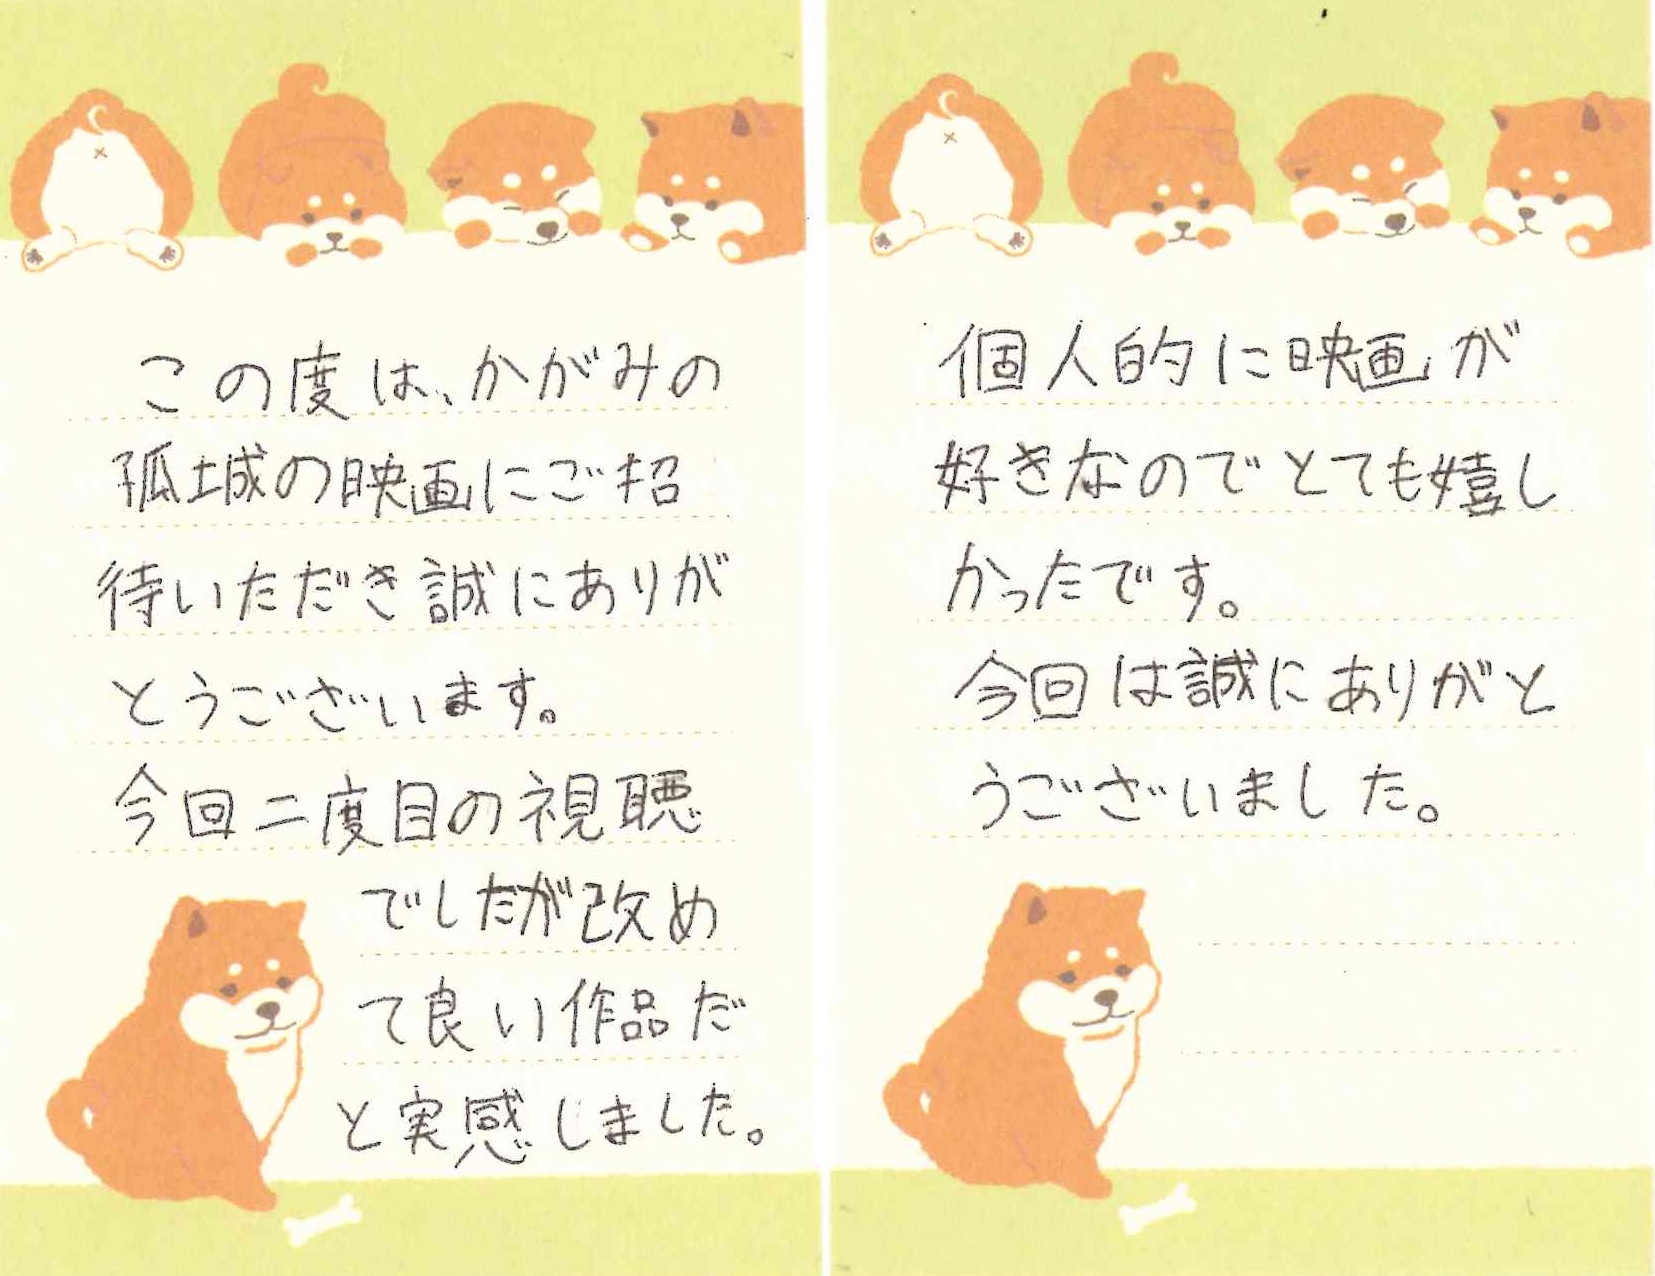 この度は、かがみの
孤城の映画にご招
待いただき誠にありが
とうございます。
今回二度目の視聴
でしたが改め
て良い作品だ
と実感しました。
個人的に映画が
好きなのでとても嬉し
かったです。
今回は誠にありがと
うございました。